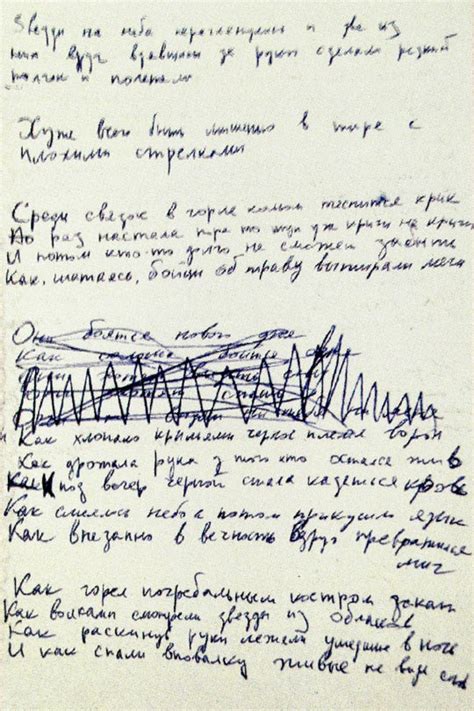 Звезды на небе переглянулись и две из
них вдруг взявшись за руки сделали резкий
и полетели
Хуже всего быть мишенью в тире с
плохими стрелками
Среди связок в горле комом теснится крик
Но раз настала пора то тут уж кричи не кричи
И потом кто-то долго не сможет забыть
Как, шатаясь, бойцы об траву вытирали мечи
Они боятся нового дня
Как солома боится
Как хлопало крыльями черное племя ворон
Как дрожала рука у того кто остался жив
Как под вечер черной стала казаться кровь
Как смеялось небо а потом прикусило язык
Как внезапно в вечность вдруг превратился
миг
Как горел погребальным костром закат
Как волками смотрели звезды из облаков
Как раскинув руки лежали ушедшие в ночь
И как спали вповалку живые не видя снов